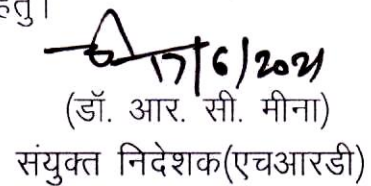 हेतु।
17/6/2021
(डॉ. आर. सी. मीना)
संयुक्त निदेशक(एचआरडी)